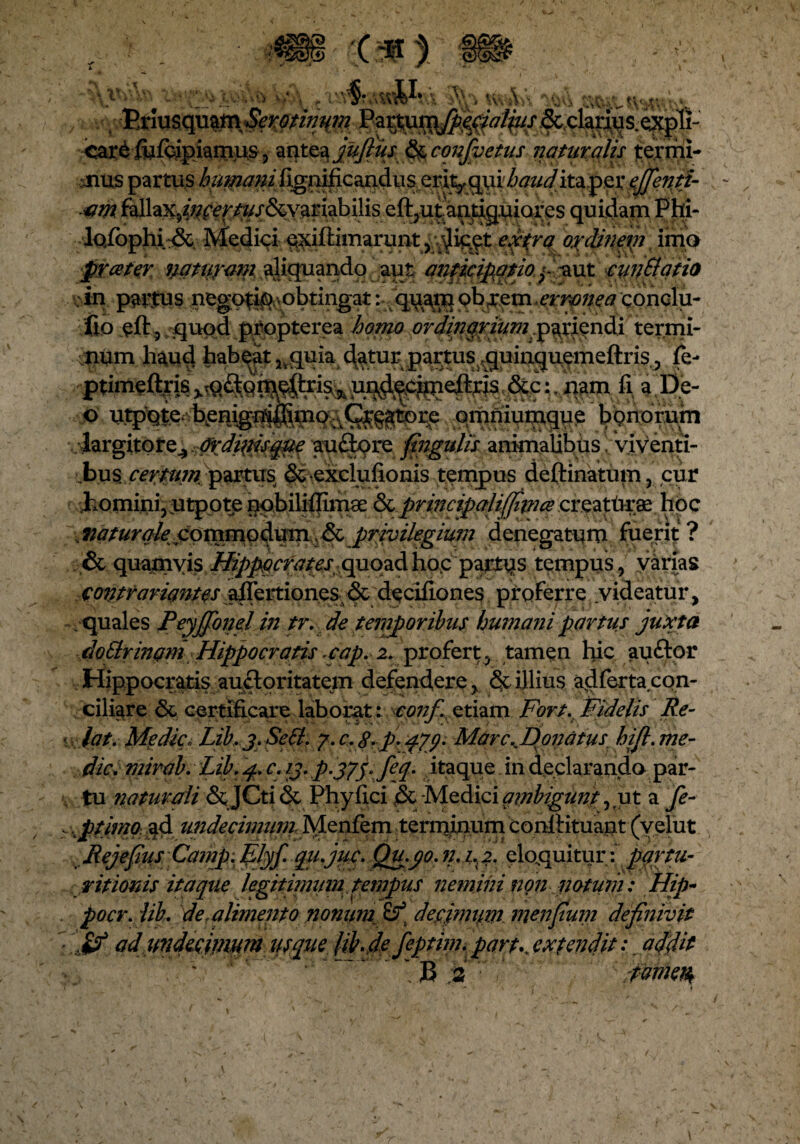 (11)
§. II.
Priusquam Serotinum Partum specialius & clarius expli-
care suscipiamus, antea justus & consvetus naturalis termi-
nus partus humani significandus erit, qui haud ita per essenti-
am fallax, incertus & variabilis est, ut antiquiores quidam Phi-
losophi & Medici existimarunt, licet extra ordinem imo
præter naturam aliquando aut anticipatio, aut cunctatio
in partus negotio obtingat: quam ob rem erronea conclu-
sio est, quod propterea homo ordinarium pariendi termi-
num haud habeat, quia datur partus quinquemestris, se-
ptimestris, octomestris, undecimestris &c: nam si a De-
o utpote benignissimo Creatore omniumque bonorum
largitore, Ordinisque auctore singulis animalibus viventi-
bus certum partus & exclusionis tempus destinatum, cur
homini, utpote nobilissimæ & principalissimæ creaturæ hoc
naturale commodum & privilegium denegatum fuerit?
& quamvis Hippocrates quoad hoc partus tempus, varias
contrariantes assertiones & decisiones proferre videatur,
quales Peyssonel in tr. de temporibus humani partus juxta
doctrinam Hippocratis cap. 2. profert, tamen hic auctor
Hippocratis auctoritatem defendere, & illius adserta con-
ciliare & certificare laborat: conf. etiam Fort. Fidelis Re-
lat. Medic. Lib. 3. Sect. 7. c. 8. p. 479. Marc. Donatus hist. me-
dic. mirab. Lib. 4. c. 13. p. 375. seq. itaque in declarando par-
tu naturali & JCti & Physici & Medici ambigunt, ut a se-
ptimo ad undecimum Mensem terminum constituant (velut
Rejesius Camp. Elys. qu. juc. Qu. 90. n. 1. 2. eloquitur: partu-
ritionis itaque legitimum tempus nemini non notum: Hip-
pocr. lib. de alimento nonum & decimum mensium definivit
& ad undecimum usque lib. de septim. part. extendit: addit
B 2 tamen